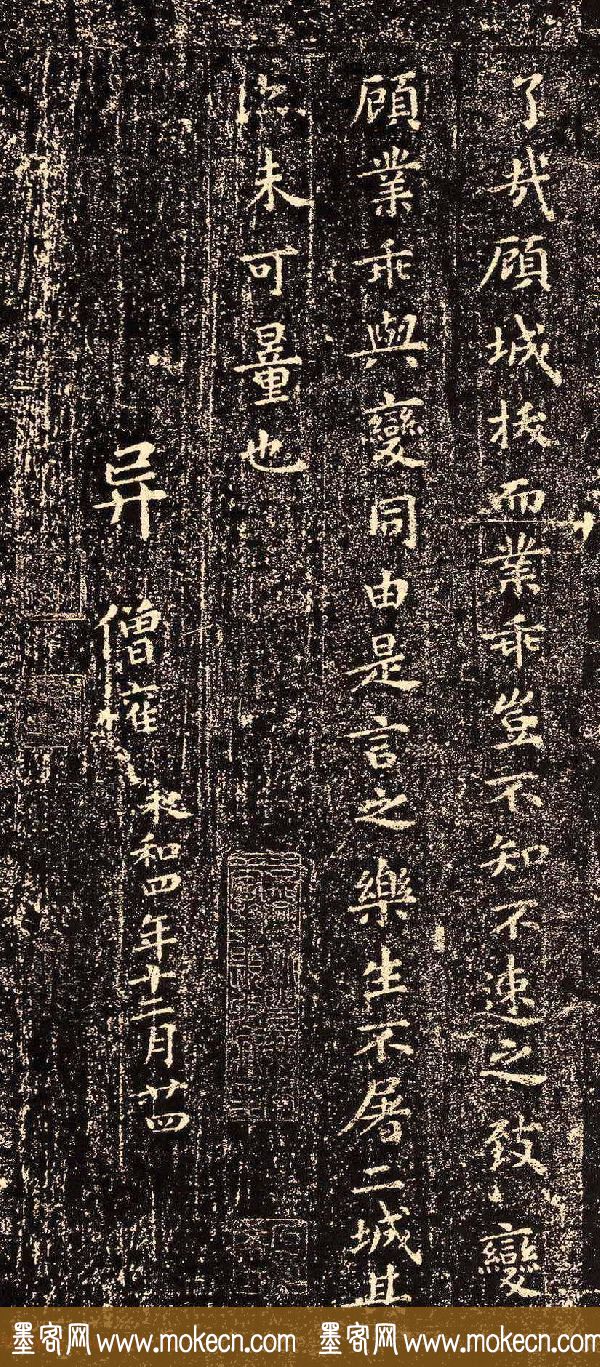 了哉顧城拔而業乖豈不知不速之致變
顧業乖與變同由是言之樂生不屠二城其
未可量也
异 僧權 永和四年十二月廿四
墨客网 www.mokecn.com 墨客网 www.mokecn.com